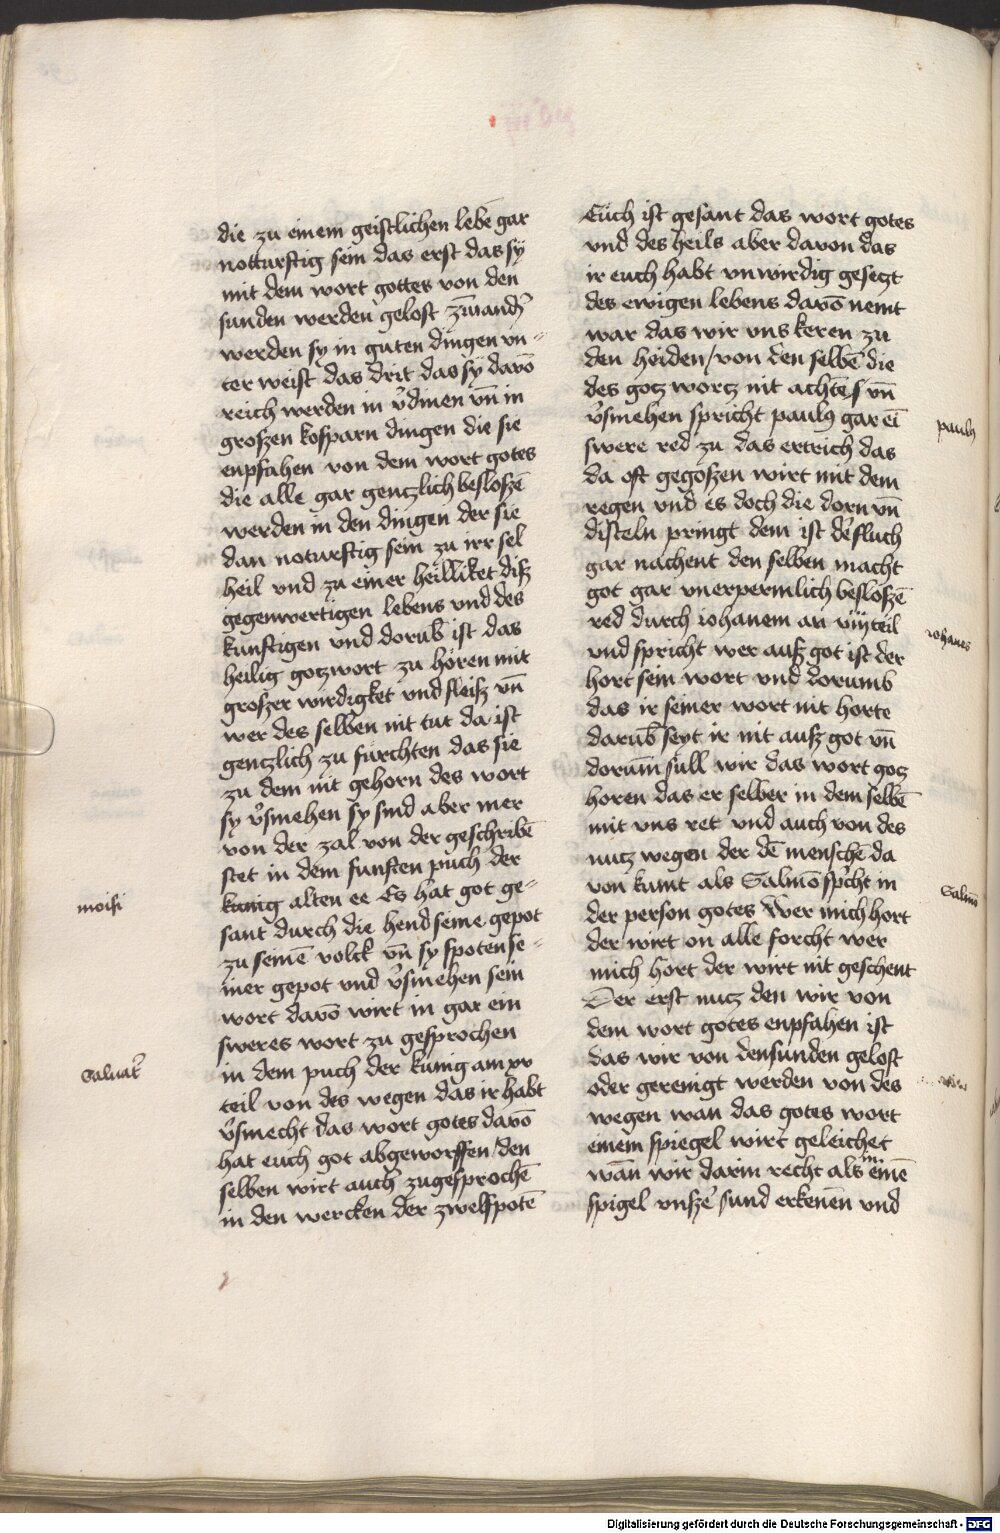 die zu einem geistlichen lebē gar
notturftig sein das erst das sy
mit dem wort gottes von den
sunden werden gelost zūm andn̄
werden sy in guten dingen vn-
ter weist das drit das sy davō
reich werden in v̄dinen vn̄ in
groszen kosparn dingen die sie
enpfahen von dem wort gotes
die alle gar gentzlich besloszē
werden in den dingen der sie
dan noturftig sein zu irr sel
heil vnd zu einer heilliket disz
gegenwertigen lebens vnd des
kunftigen vnd dorub ist das
heilig gotzwort zu hören mit
groszer wirdigket vnd fleisz vn̄
wer des selben nit tut da ist
gentzlich zu furchten das sie
zu dem nit gehorn des wort
sy v̄smehen sy sind aber mer
von der zal von der geschribē
stet in dem funften puch der
kunig alten ee Es hat got ge-
moisi
sant durch die hend seine gepot
zu seinē volck vn̄ sy spoten se-
iner gepot vnd v̄smehen sein
wort davō wirt in gar ein
sweres wort zu gesprochen
in dem puch der kunig am xv
Saluat̄
teil von des wegen das ir habt
v̄smecht das wort gotes davō
hat euch got abgeworffen / den
selben wirt auch zugesprochē
in den wercken der zwelfpotē
Euch ist gesant das wort gotes
vnd des heils aber davon das
ir euch habt vnwirdig gesetzt
des ewigen lebens davō nemt
war das wir vns keren zu
den heiden / von den selbē die
des gotz wortz nit achtē / vn̄
v̄smehen spricht paulus gar eī
paulus
swere red zu das ertrich das
da oft gegoszen wirt mit dem
regen vnd es doch die dorn vn̄
disteln pringt dem ist d̄ fluch
gar nachent den selben macht
got gar vnerpermlich besloszē
red durch iohanem an viij teil
iohanes
vnd spricht wer ausz got ist der
hort sein wort vnd dorumb
das ir seiner wort nit horte
darub seyt ir nit ausz got vn̄
dorum̄ sull wir das wort gotz
horen das er selber in dem selbē
mit vns ret vnd auch von des
nutz wegen der dē menschē da
von kumt als Salmō sp̄cht in
Salmō
der person gotes Wer mich hort
der wirt on alle forcht wer
mich hort der wirt nit geschent
Der erst nutz den wir von
dem wort gotes enpfahen ist
das wir von den sunden gelost
oder gereinigt werden von des
wegen wan das gotes wort
einem spiegel wirt geleichet
wan̄ wir darin recht als in einē
spigel vnsz̄ sund erkenen̄ vnd